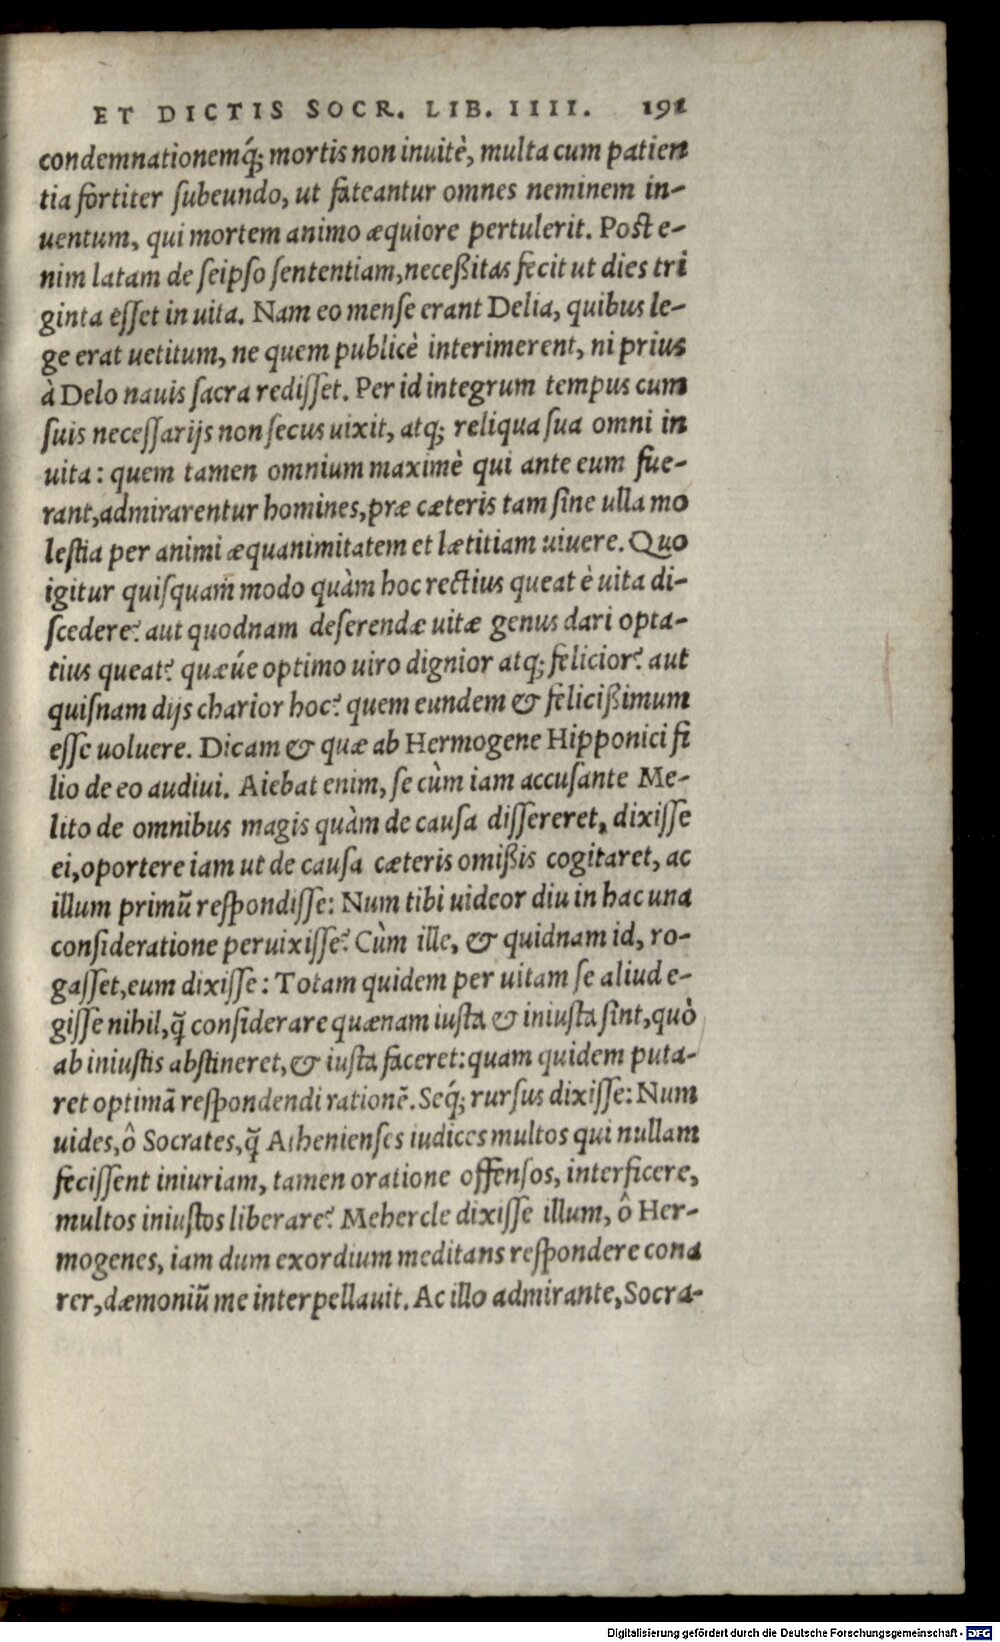 ET DICTIS SOCR. LIB. IIII. 191
condemnationemq́; mortis non inuitè, multa cum patien
tia fortiter ſubeundo, ut fateantur omnes neminem in-
uentum, qui mortem animo æquiore pertulerit. Post e-
nim latam de ſeipſo ſententiam, neceßitas fecit ut dies tri
ginta eſſet in uita. Nam eo menſe erant Delia, quibus le-
ge erat uetitum, ne quem publicè interimerent, ni prius
à Delo nauis ſacra rediſſet. Per id integrum tempus cum
ſuis neceſſarijs non ſecus uixit, atq; reliqua ſua omni in
uita: quem tamen omnium maximè qui ante eum fue-
rant, admirarentur homines, præ cæteris tam ſine ulla mo
leſtia per animi æquanimitatem et lætitiam uiuere. Quo
igitur quiſquam modo quàm hoc rectius queat è uita di-
ſcedere? aut quodnam deſerendæ uitæ genus dari opta-
tius queat? quæúe optimo uiro dignior atq; felicior? aut
quiſnam dijs charior hoc? quem eundem & felicißimum
eſſe uoluere. Dicam & quæ ab Hermogene Hipponici fi
lio de eo audiui. Aiebat enim, ſe cùm iam accuſante Me-
lito de omnibus magis quàm de cauſa diſſereret, dixiſſe
ei, oportere iam ut de cauſa cæteris omißis cogitaret, ac
illum primũ reſpondiſſe: Num tibi uideor diu in hac una
conſideratione peruixiſſe? Cùm ille, & quidnam id, ro-
gaſſet, eum dixiſſe: Totam quidem per uitam ſe aliud e-
giſſe nihil, q̃ conſiderare quænam iuſta & iniuſta ſint, quò
ab iniuſtis abſtineret, & iuſta faceret: quam quidem puta-
ret optimã reſpondendi rationẽ. Seq́; rurſus dixiſſe: Num
uides, ô Socrates, q̃ Athenienſes iudices multos qui nullam
feciſſent iniuriam, tamen oratione offenſos, interficere,
multos iniuſtos liberare? Mehercle dixiſſe illum, ô Her-
mogenes, iam dum exordium meditans reſpondere cona
rer, dæmoniũ me interpellauit. Ac illo admirante, Socra-
Digitalisierung gefördert durch die Deutsche Forschungsgemeinschaft - DFG